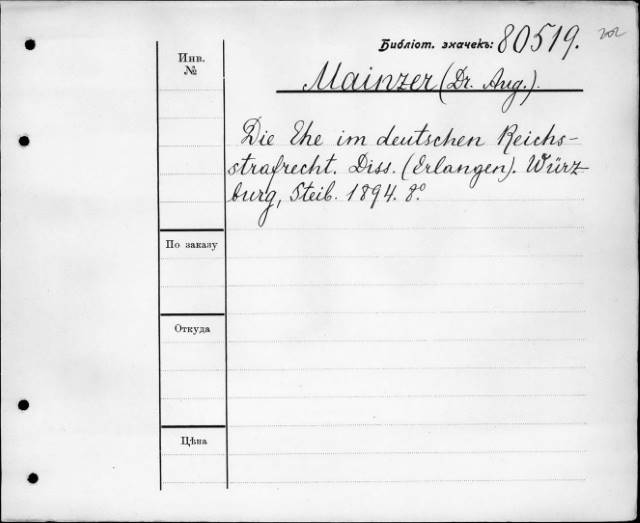 Библіот. значекъ: 80519. 202
Инв.
№
Mainzer (Dr. Aug.).
Die Ehe im deutschen Reichs-
strafrecht. Diss. (Erlangen). Würz-
burg, Steib. 1894. 8º
По заказу
Откуда
Цѣна